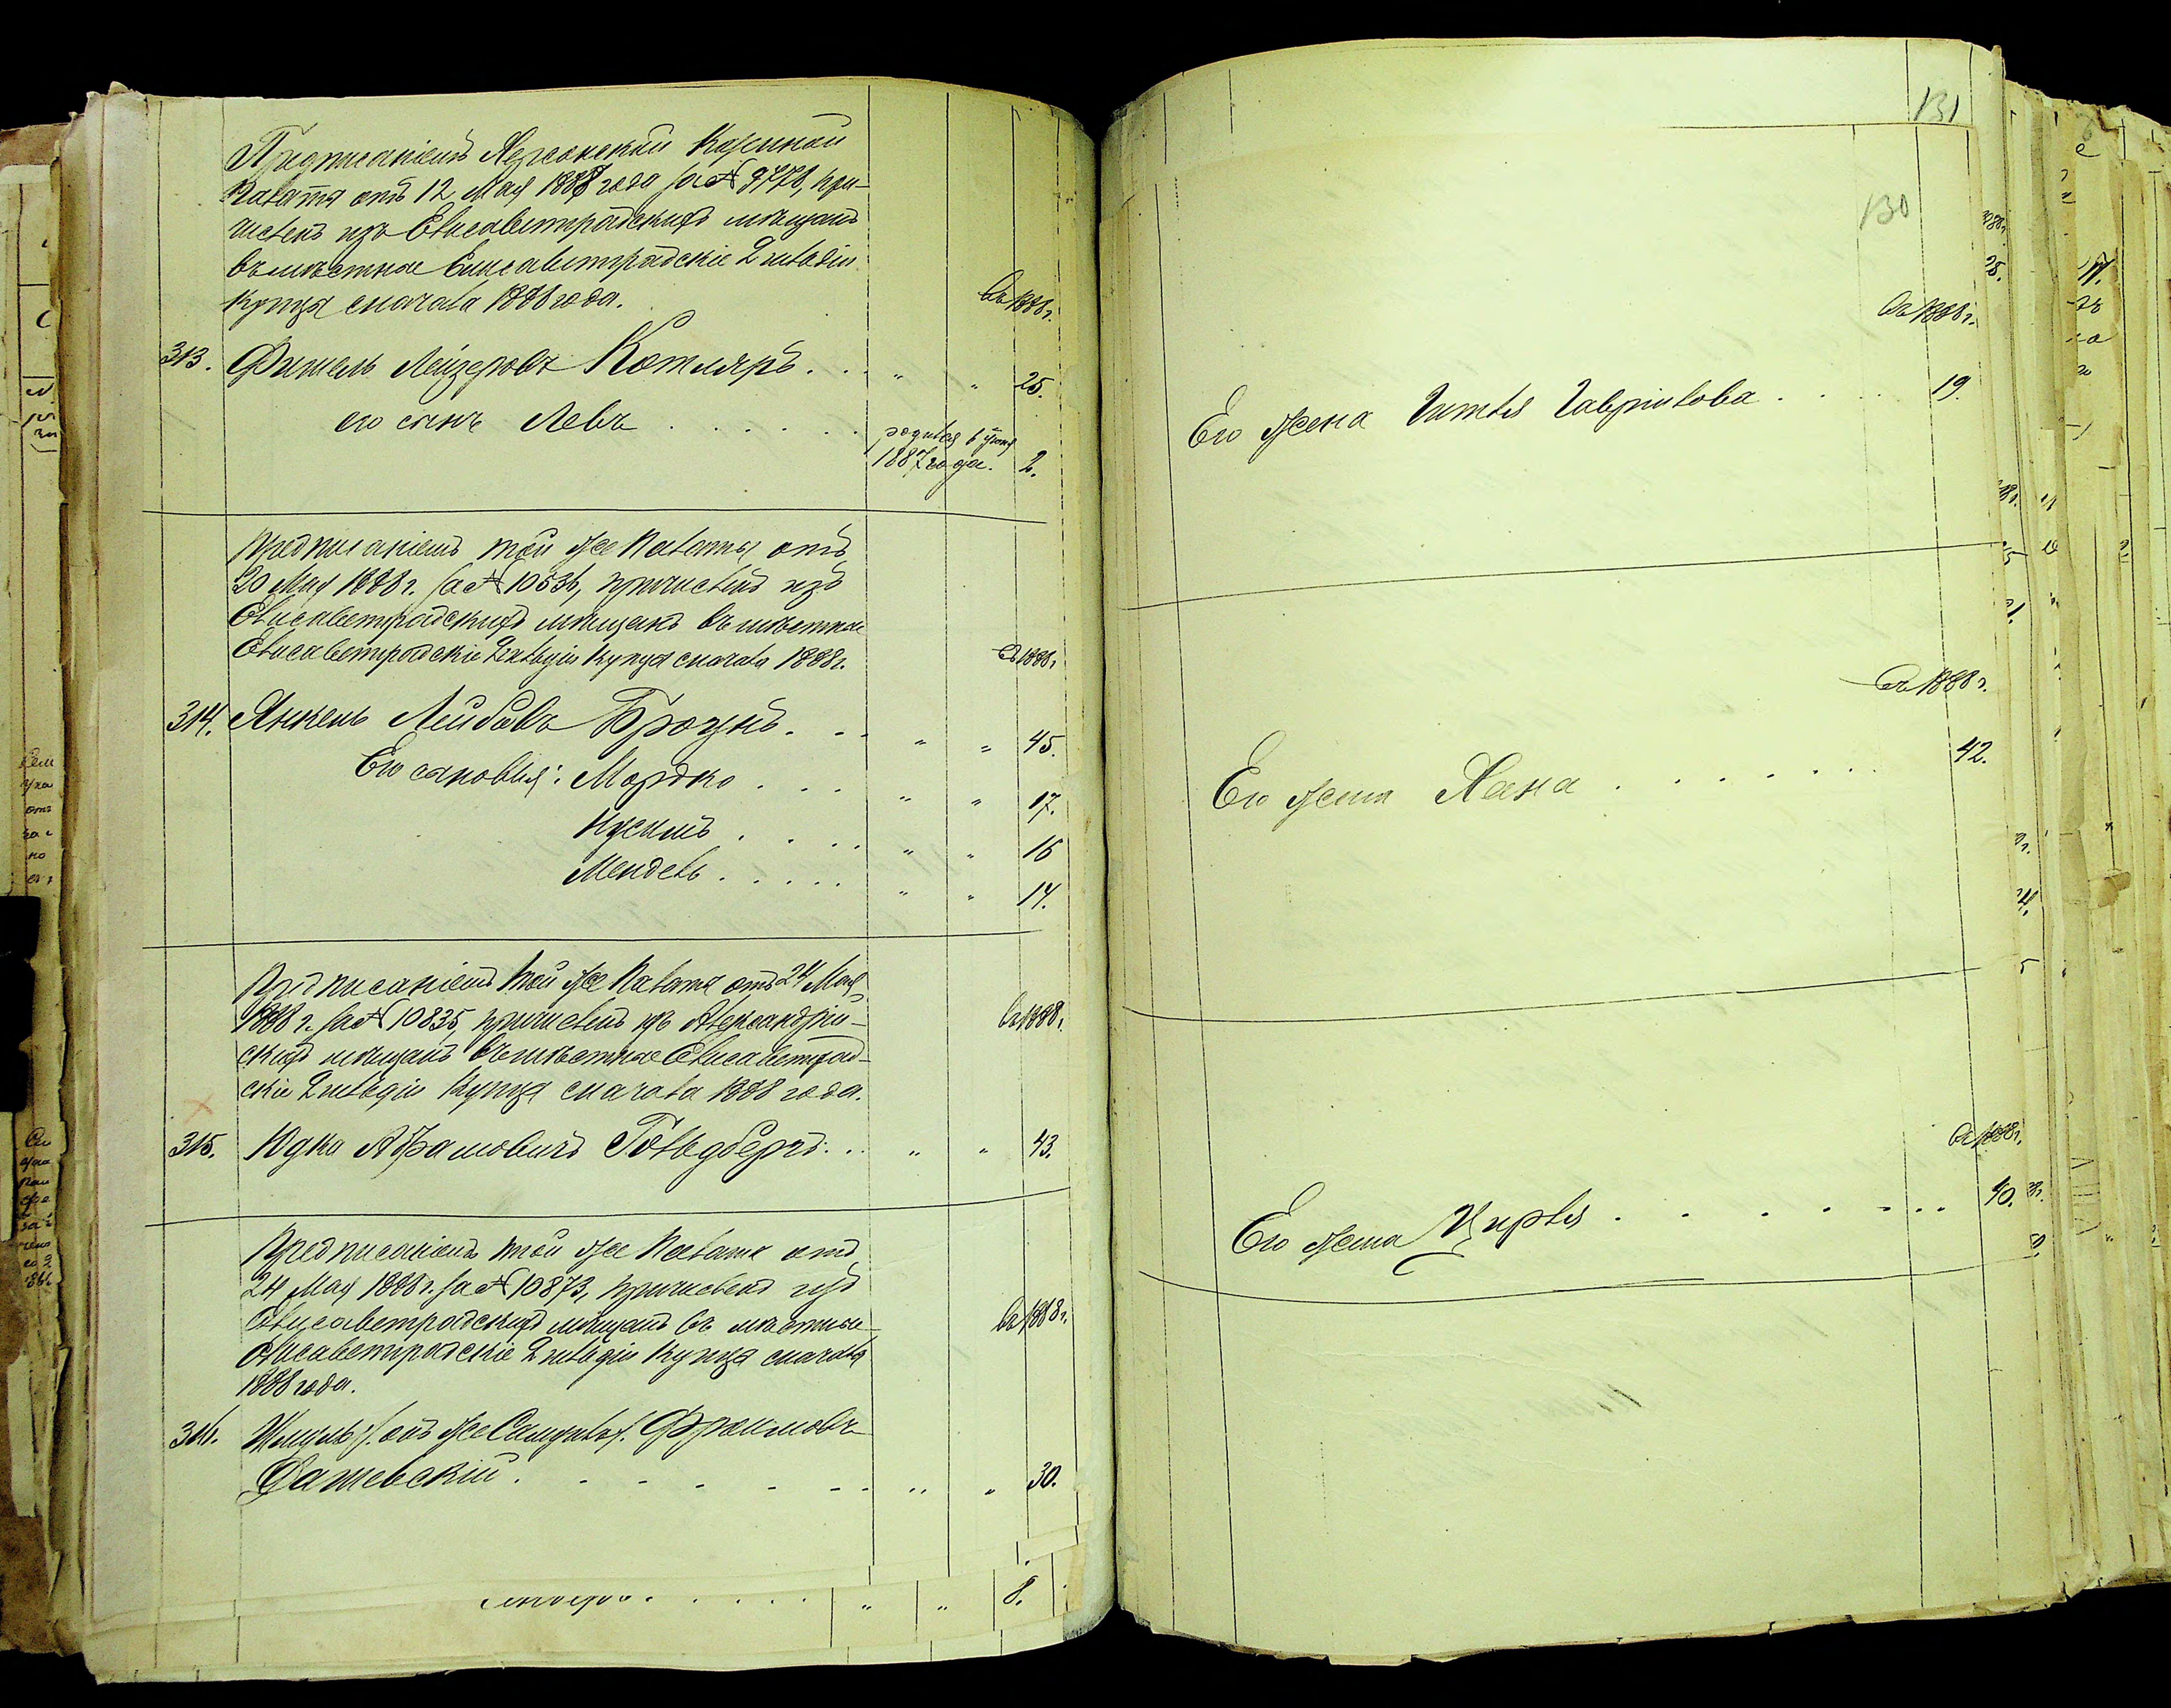 Предписаніемъ Херсонской Казенной
Палаты отъ 12 Мая 1888 года за № 9778, при-
численъ изъ Елисаветградскихъ мѣщанъ
въ мѣстные Елисаветградскіе 2 гильдіи
купцы сначала 1888 года.
въ 1888 г.
313. Фишель Лейзеровъ Котляръ . . . " " 25.
его сынъ Левъ . . . . . . родился 6 Іюня
1887 года. 2.
Предписаніемъ той же Палаты отъ
20 Мая 1888 г. за № 10536, причисленъ изъ
Елисаветградскихъ мѣщанъ въ мѣстные
Елисаветградскіе 2 гильдіи купцы сначала 1888 г.
въ 1888 г.
314. Янкель Лейбовъ Броунъ . . . " " 45.
Его сыновья: Мордко . . . " " 17.
Нусимъ . . . . " " 16
Мендель . . . . . " " 14.
Предписаніемъ той же Палаты отъ 24 Мая
1888 г. за № 10835, причисленъ изъ Александрій-
скихъ мѣщанъ въ мѣстные Елисаветград-
скіе 2 гильдіи купцы сначала 1888 года.
въ 1888 г.
315. Юдка Абрамовичъ Гольдбергъ . . . " " 43.
Предписаніемъ той же Палаты отъ
24 Мая 1888 г. за № 10873, причисленъ изъ
Елисаветградскихъ мѣщанъ въ мѣстные
Елисаветградскіе 2 гильдіи купцы сначала
1888 года.
въ 1888 г.
316. Шмуль /: онъ же Самуилъ :/ Фроимовъ
Дашевскій . . . . . . " " 30.
" " 8.
131
130
въ 1888 г.
Его жена Гавриилова . . . . . 19.
въ 1888 г.
Его жена Хана . . . . . . . 42.
въ 1888 г.
Его жена Цирля . . . . . . . 40.